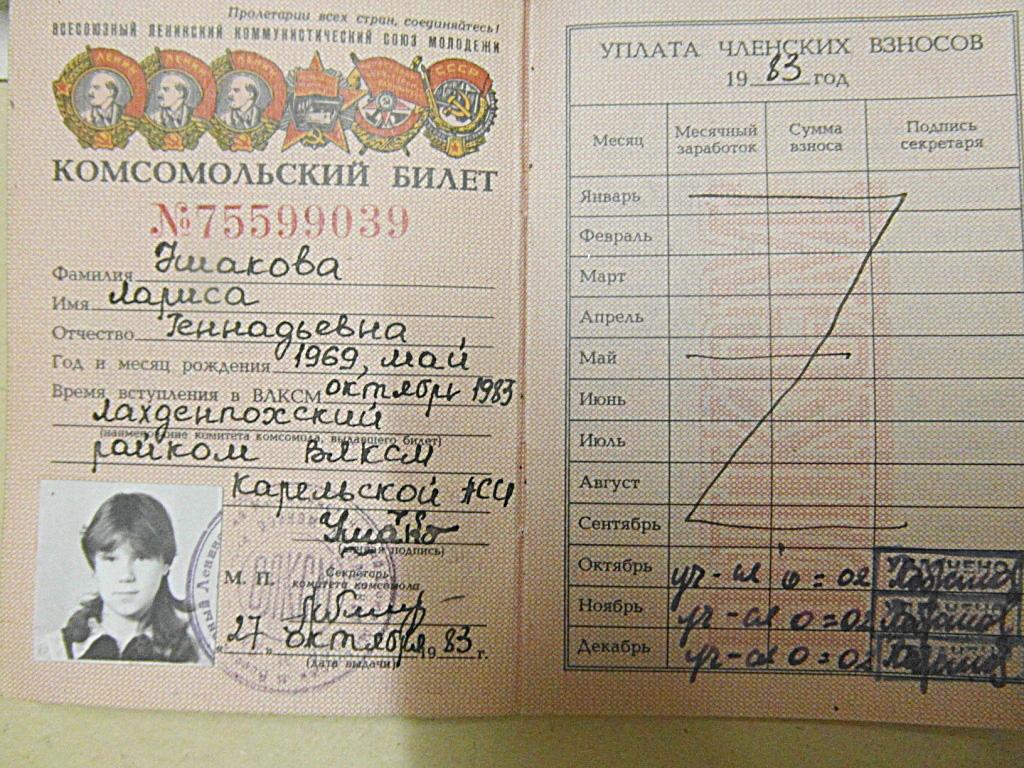 Пролетарии всех стран, соединяйтесь!
ВСЕСОЮЗНЫЙ ЛЕНИНСКИЙ КОММУНИСТИЧЕСКИЙ СОЮЗ МОЛОДЕЖИ
ЛЕНИН ЛЕНИН ЛЕНИН СССР
КОМСОМОЛЬСКИЙ БИЛЕТ
№75599039
Фамилия Ушакова
Имя Лариса
Отчество Геннадьевна
Год и месяц рождения 1969, май
Время вступления в ВЛКСМ октябрь 1983
Лахденпохский
(наименование комитета комсомола, выдавшего билет)
райком ВЛКСМ
Карельской АССР
(личная подпись)
М. П. Секретарь
комитета комсомола
"27" октября 1983 г.
(дата выдачи)
УПЛАТА ЧЛЕНСКИХ ВЗНОСОВ
1983 год
Месяц Месячный заработок Сумма взноса Подпись секретаря
Январь
Февраль
Март
Апрель
Май
Июнь
Июль
Август
Сентябрь
Октябрь уч-ся 0=02
Ноябрь уч-ся 0=02
Декабрь уч-ся 0=02